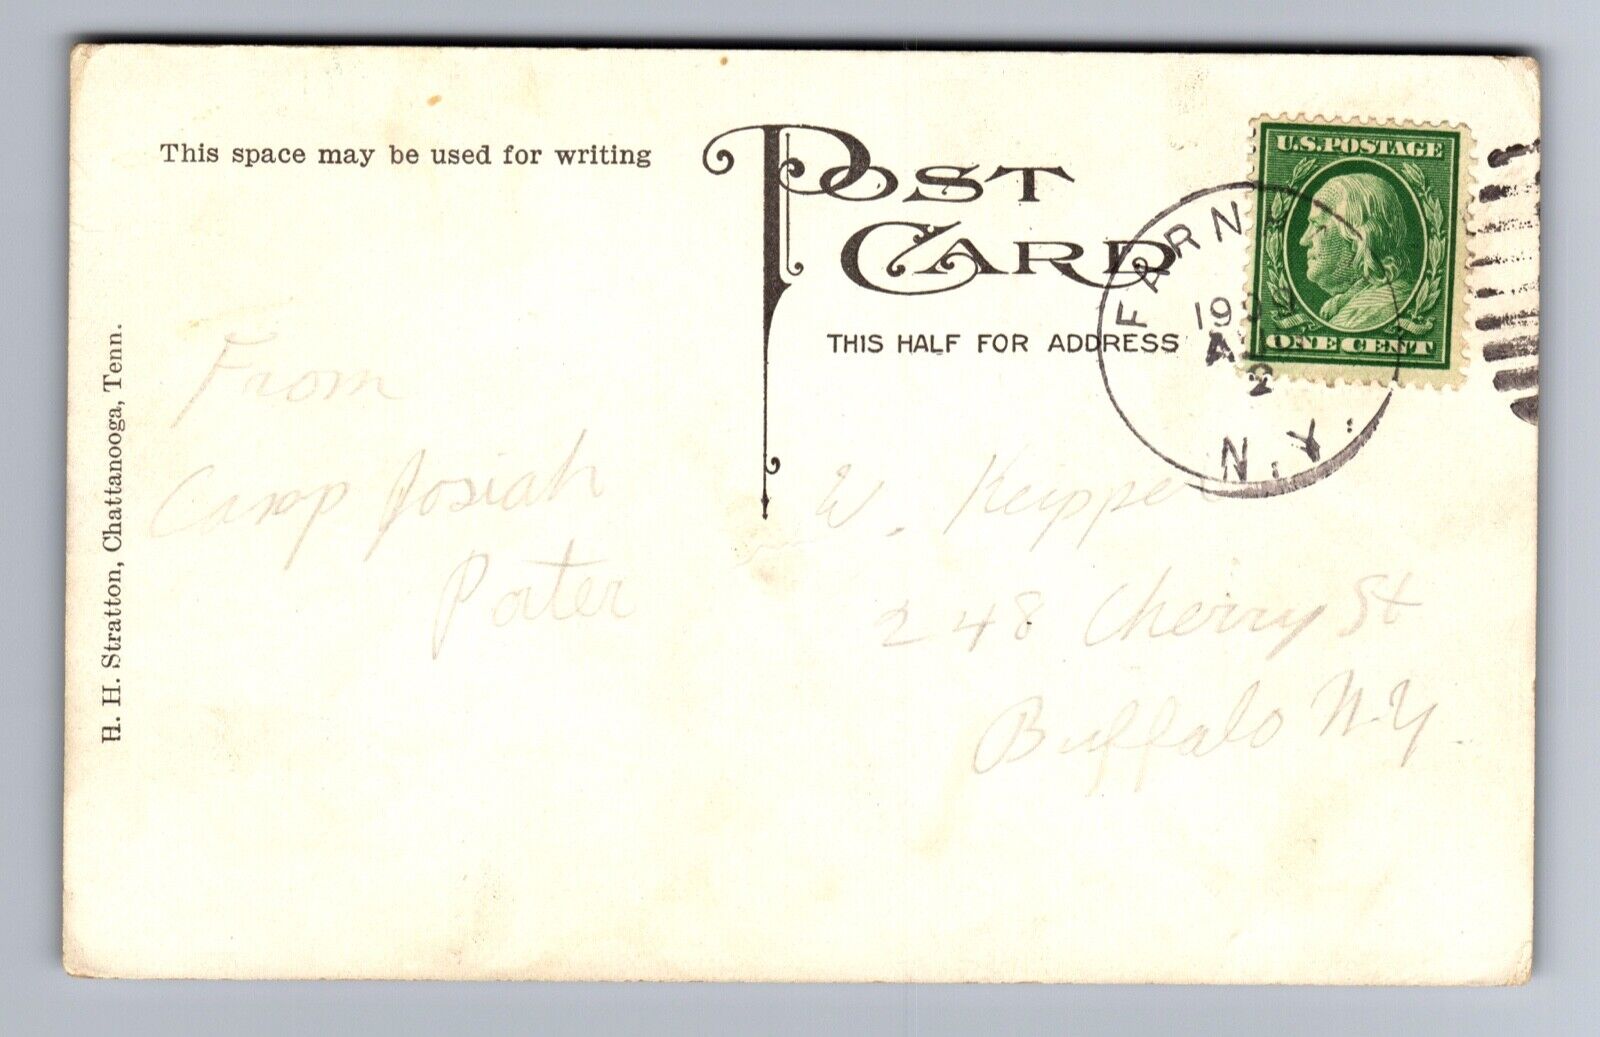 This space may be used for writing
POST
CARD
THIS HALF FOR ADDRESS
U.S.POSTAGE
ONE CENT
FARN
19
2
N.Y.
H. H. Stratton, Chattanooga, Tenn.
From
Camp Josiah
Porter
W. Keipper
248 Cherry St
Buffalo N.Y.